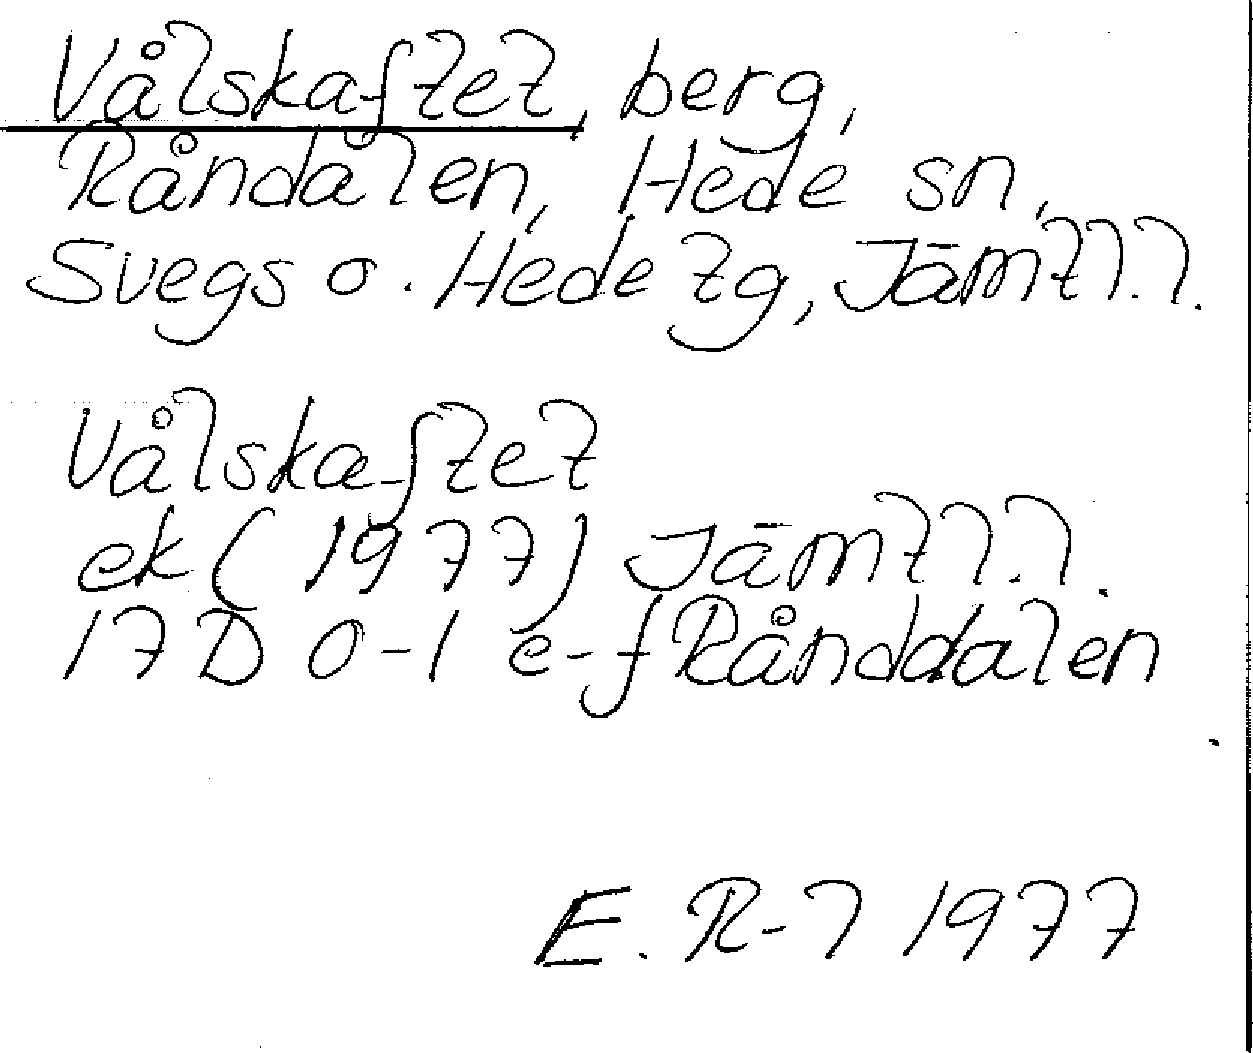 Vålskaftet, berg,
Råndalen, Hede sn,
Svegs o. Hede tg, Jämtl.l.
Vålskaftet
ek (1977) Jämtl.l.
17D 0-1 e-f Rånddalen
E. R-l 1977